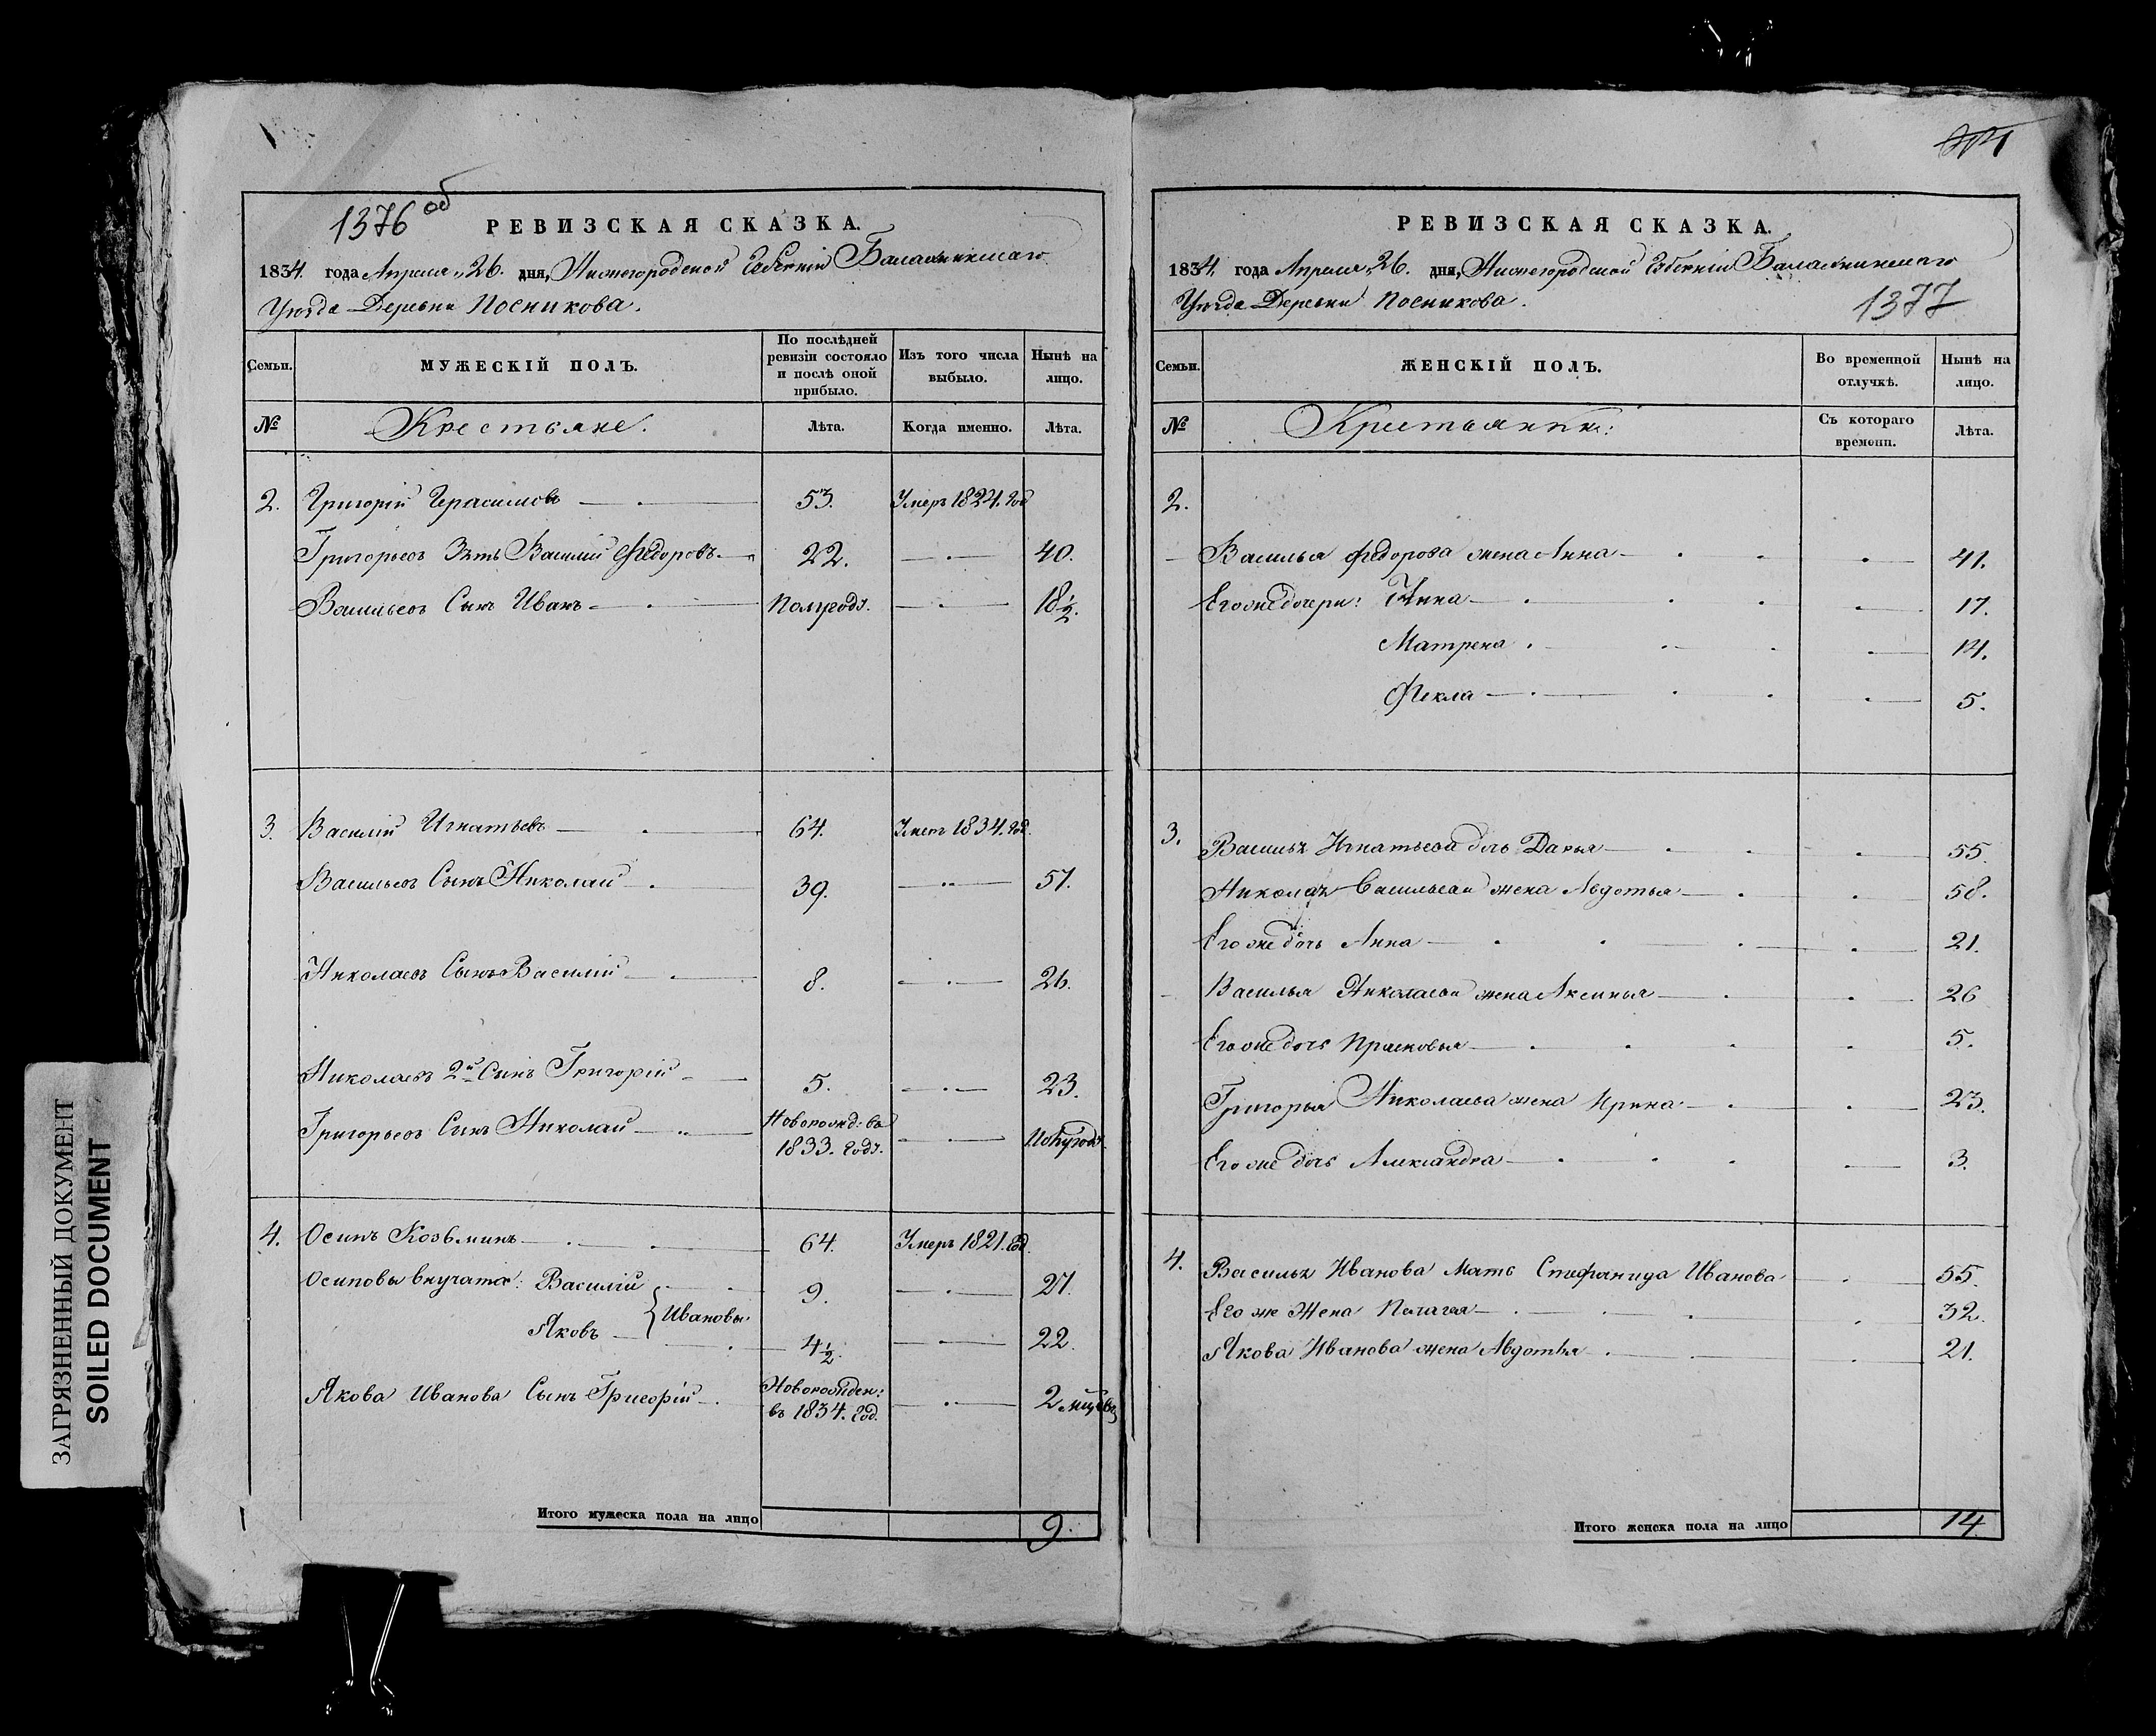 1376 об
РЕВИЗСКАЯ СКАЗКА.
1834. года Апреля „26. дня, Нижегородской Губерніи Балахнинскаго
Уезда Деревни Посникова.
Семьи. МУЖЕСКІЙ ПОЛЪ. По послѣдней ревизіи состояло и послѣ оной прибыло. Изъ того числа выбыло. Нынѣ на лицо.
№ Крестьяне. Лѣта. Когда именно. Лѣта.
2. Григорій Герасимовъ 53. Умеръ 1824. год
Григорьевъ Зять Василій Федоровъ 22. 40.
Васильевъ Сынъ Иванъ Полугоду. 18 1/2.
3. Василій Игнатьевъ 64. Умеръ 1834. год.
Васильевъ Сынъ Николай 39. 57.
Николаевъ Сынъ Василій 8. 26.
Николаевъ 2й Сынъ Григорій 5. 23.
Григорьевъ Сынъ Николай Новорожд: въ 1833. году. Полугоду.
4. Осипъ Козьминъ 64. Умеръ 1821. год.
Осиповы внучата: Василій 9. 27.
Ивановы
Яковъ 4 1/2. 22.
Якова Иванова Сынъ Григорій Новорожден: въ 1834. год. 2 мѣс
Итого мужеска пола на лицо 9.
РЕВИЗСКАЯ СКАЗКА.
1834. года Апреля „26. дня, Нижегородской Губерніи Балахнинскаго
Уезда Деревни Посникова.
1377
Семьи. ЖЕНСКІЙ ПОЛЪ. Во временной отлучкѣ. Нынѣ на лицо.
№ Крестьянки: Съ котораго времени. Лѣта.
2.
Василья Федорова жена Анна 41.
Его же дочери: Анна 17.
Матрена 14.
Фекла 5.
3. Василья Игнатьева дочь Дарья 55.
Николая Васильева жена Авдотья 58.
Его же дочь Анна 21.
Василья Николаева жена Аксинья 26
Его же дочь Прасковья 5.
Григорья Николаева жена Ирина 23.
Его же дочь Александра 3.
4. Василья Иванова Мать Стефанида Иванова 55.
Его же Жена Пелагея 32.
Якова Иванова жена Авдотья 21.
Итого женска пола на лицо 14
ЗАГРЯЗНЕННЫЙ ДОКУМЕНТ
SOILED DOCUMENT